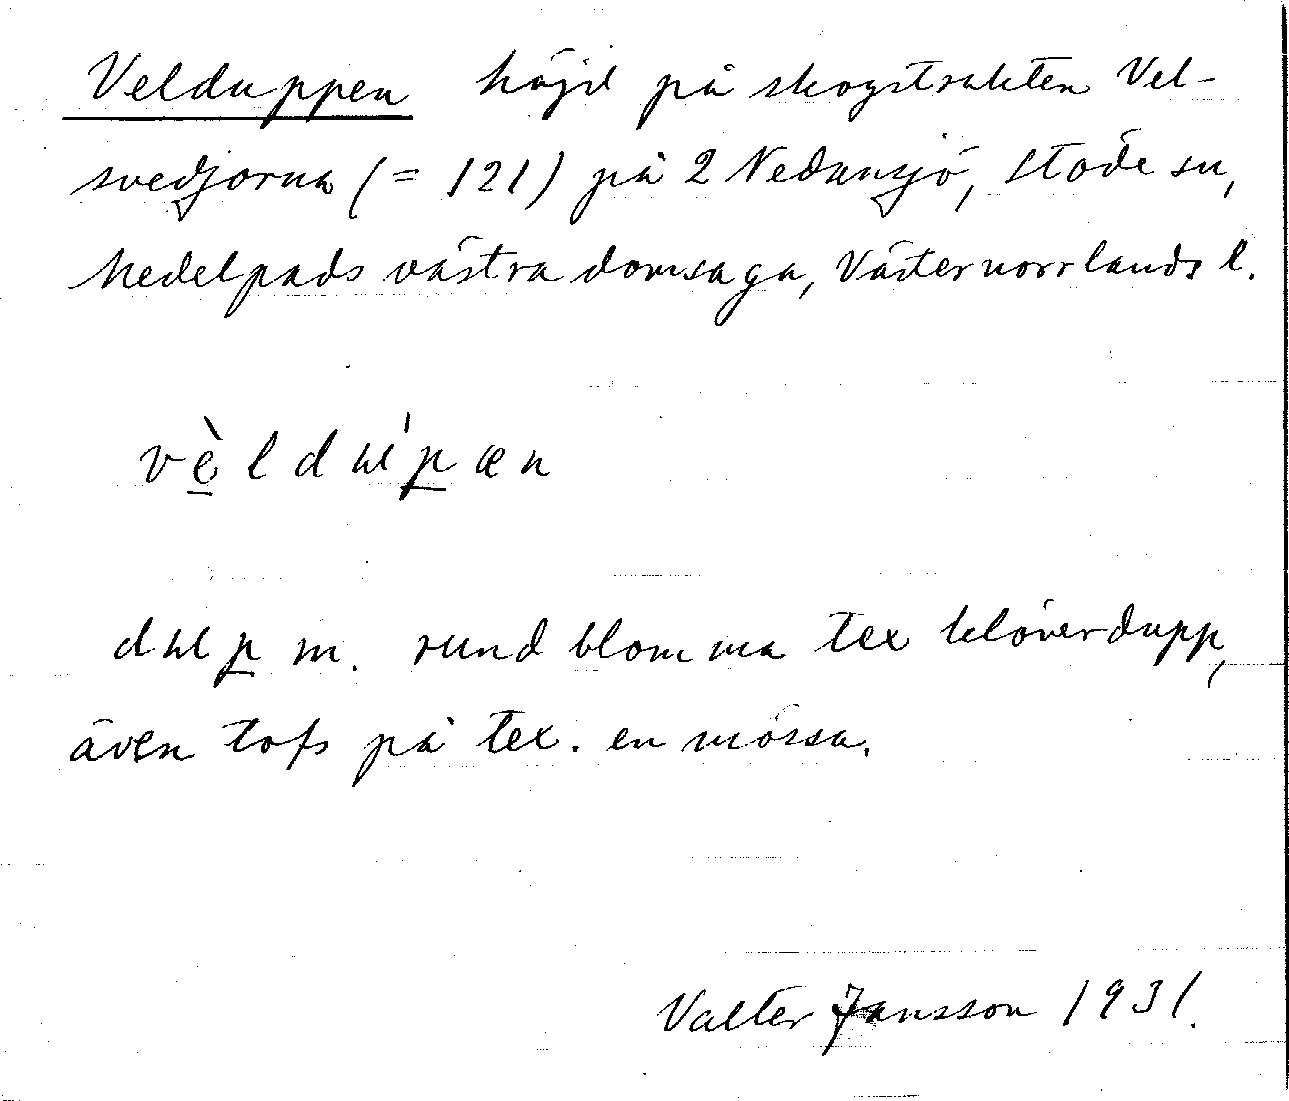 Velduppen höjd på skogstrakten Vel-
svedjorna (= 121) på 2 Nedansjö, Stöde sn,
Medelpads västra domsaga, Västernorrlands l.
vèldu̍pæn
dup m. rund blomma tex klöverdupp,
även tofs på tex. en mössa.
Valter Jansson 1931.